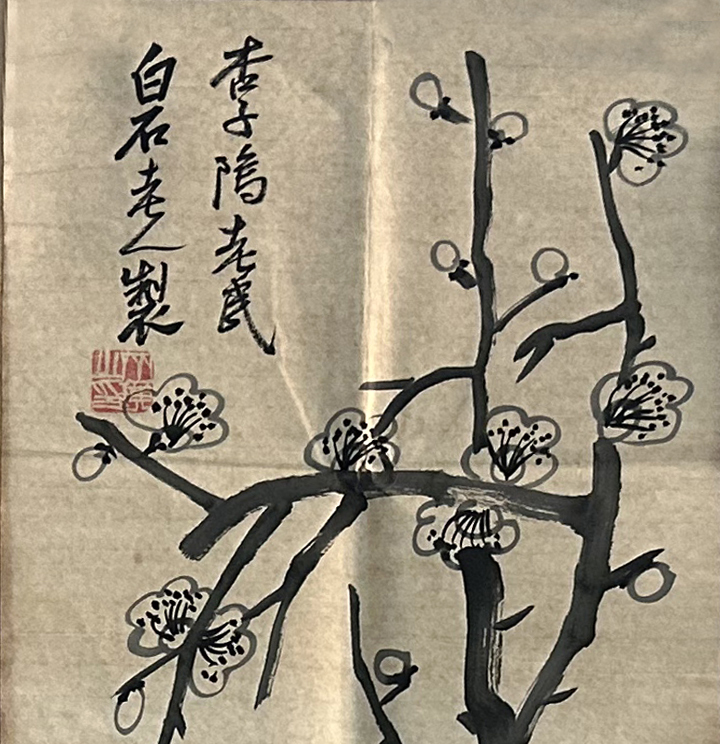 杏子隖老民
白石老人製